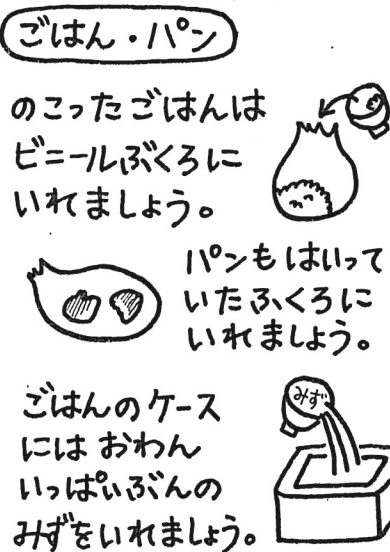 ごはん・パン
のこったごはんは
ビニールぶくろに
いれましょう。
パンもはいって
いたふくろに
いれましょう。
みず
ごはんのケース
にはおわん
いっぱいぶんの
みずをいれましょう。